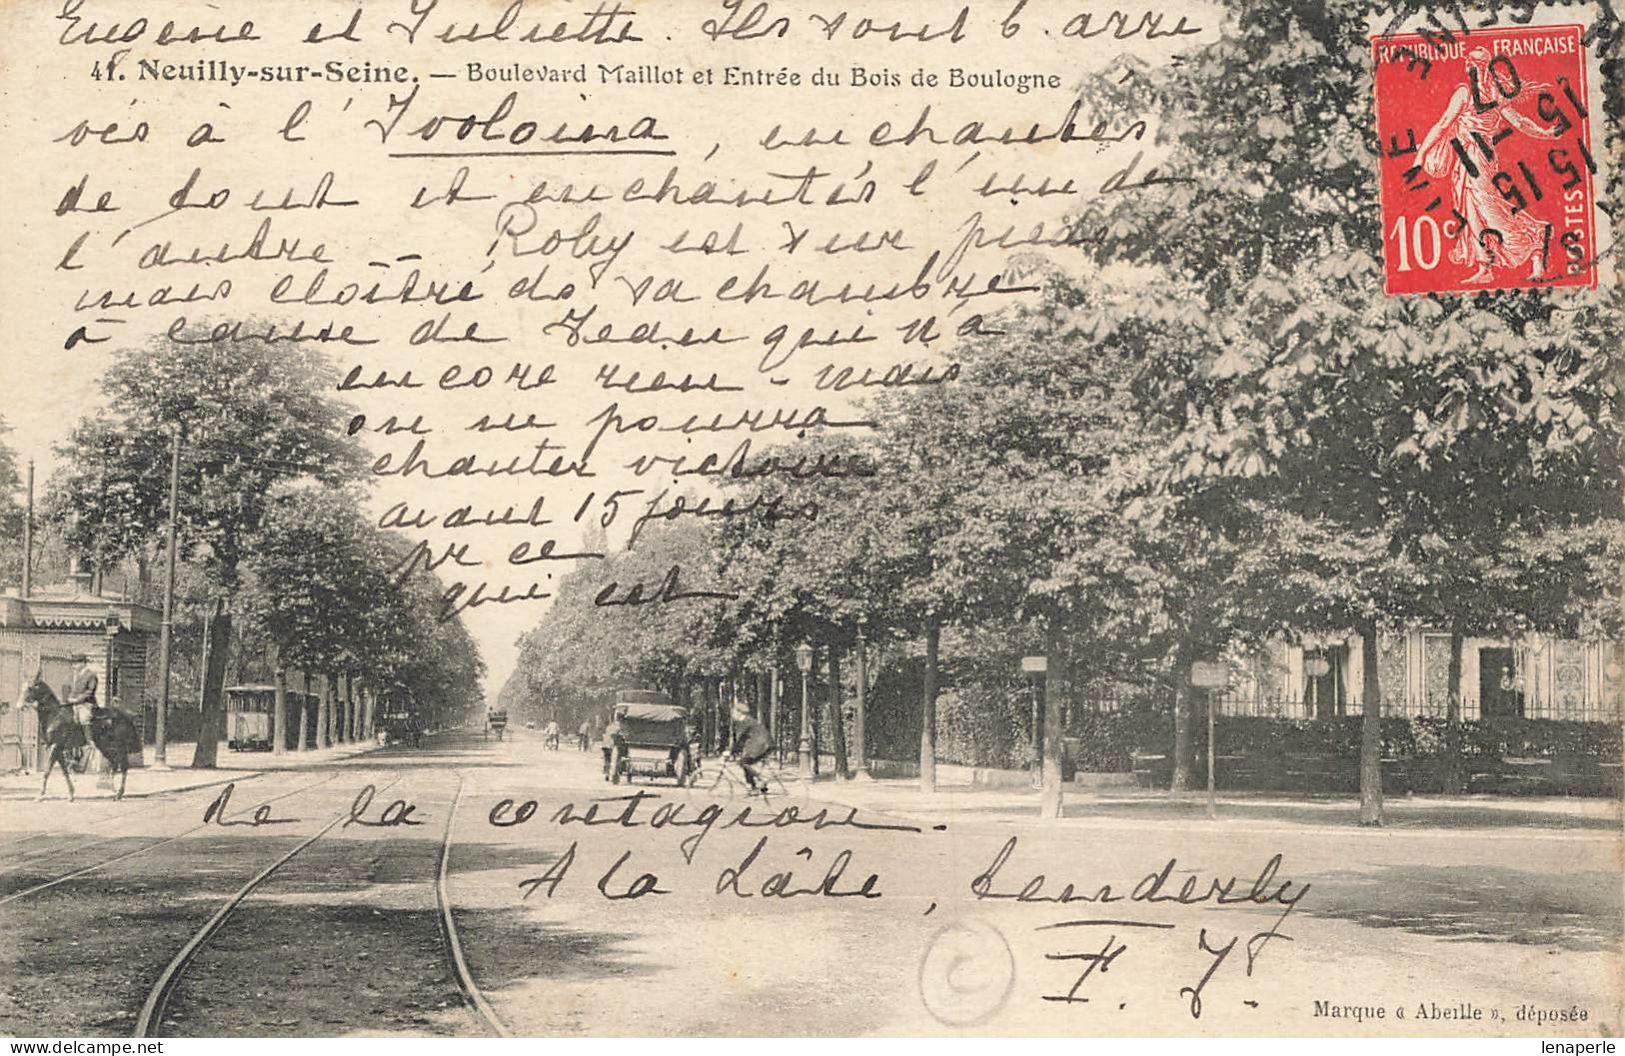 Eugène et Juliette. Ils sont b. arri
41. Neuilly-sur-Seine. — Boulevard Maillot et Entrée du Bois de Boulogne
vés à l'Ivoloina, enchantés
de tout et enchantés l'un de
l'autre – Roby est sur pieds
mais cloîtré ds sa chambre
à cause de Jean qui n'a
encore rien – mais
on ne pourra
chanter victoire
avant 15 jours
pr ce
qui est
de la contagion.
A la hâte, tenderly
F. J.
REPUBLIQUE FRANÇAISE
10c POSTES
15 15
15 -11 07
SEINE
Marque « Abeille », déposée
lenaperle